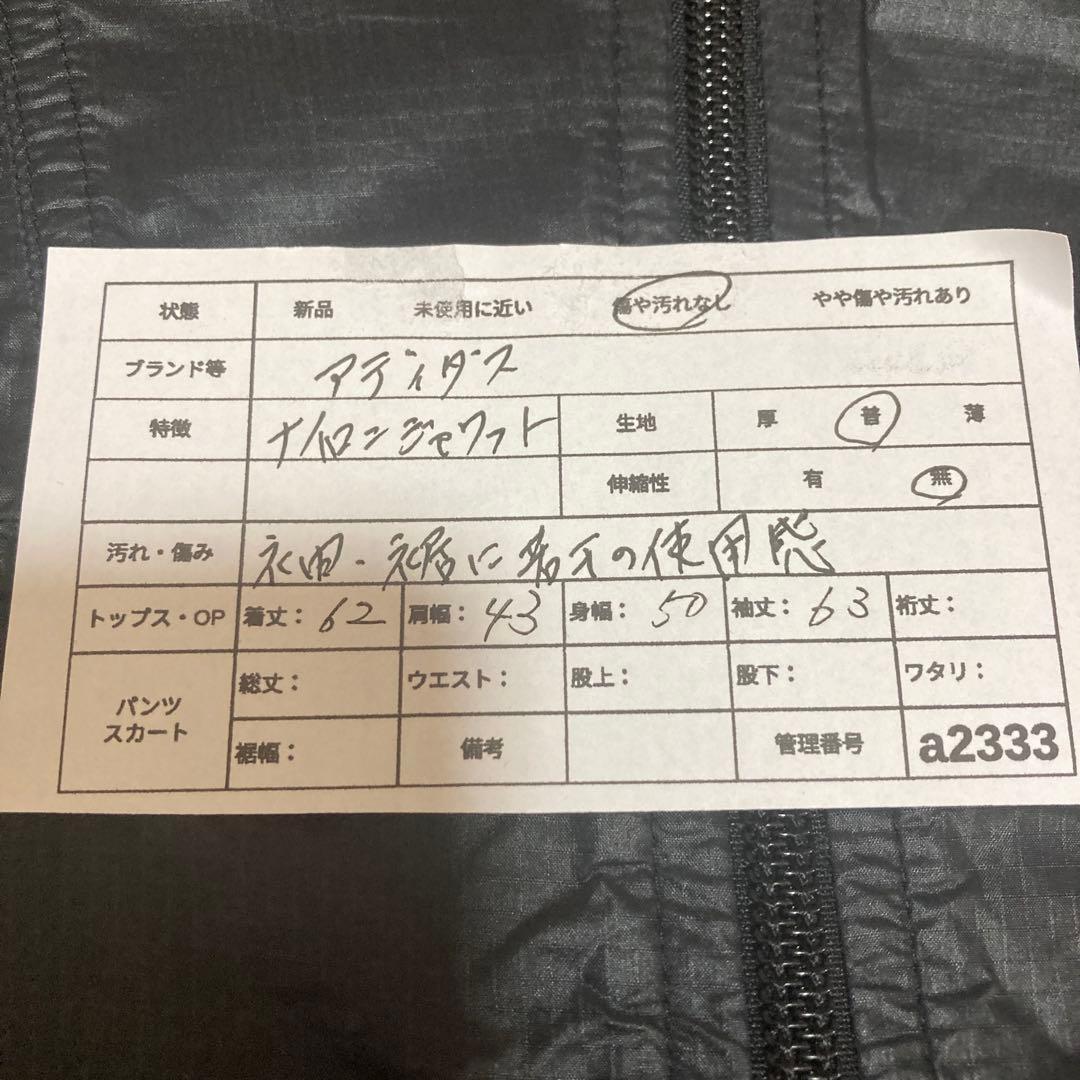 状態 新品 未使用に近い 傷や汚れなし やや傷や汚れあり
ブランド等 アディダス
特徴 ナイロンジャケット 生地 厚 普 薄
伸縮性 有 無
汚れ・傷み に若干の使用感
トップス・OP 着丈：62 肩幅：43 身幅：50 袖丈：63 裄丈：
パンツ スカート 総丈： ウエスト： 股上： 股下： ワタリ：
裾幅： 備考 管理番号 a2333